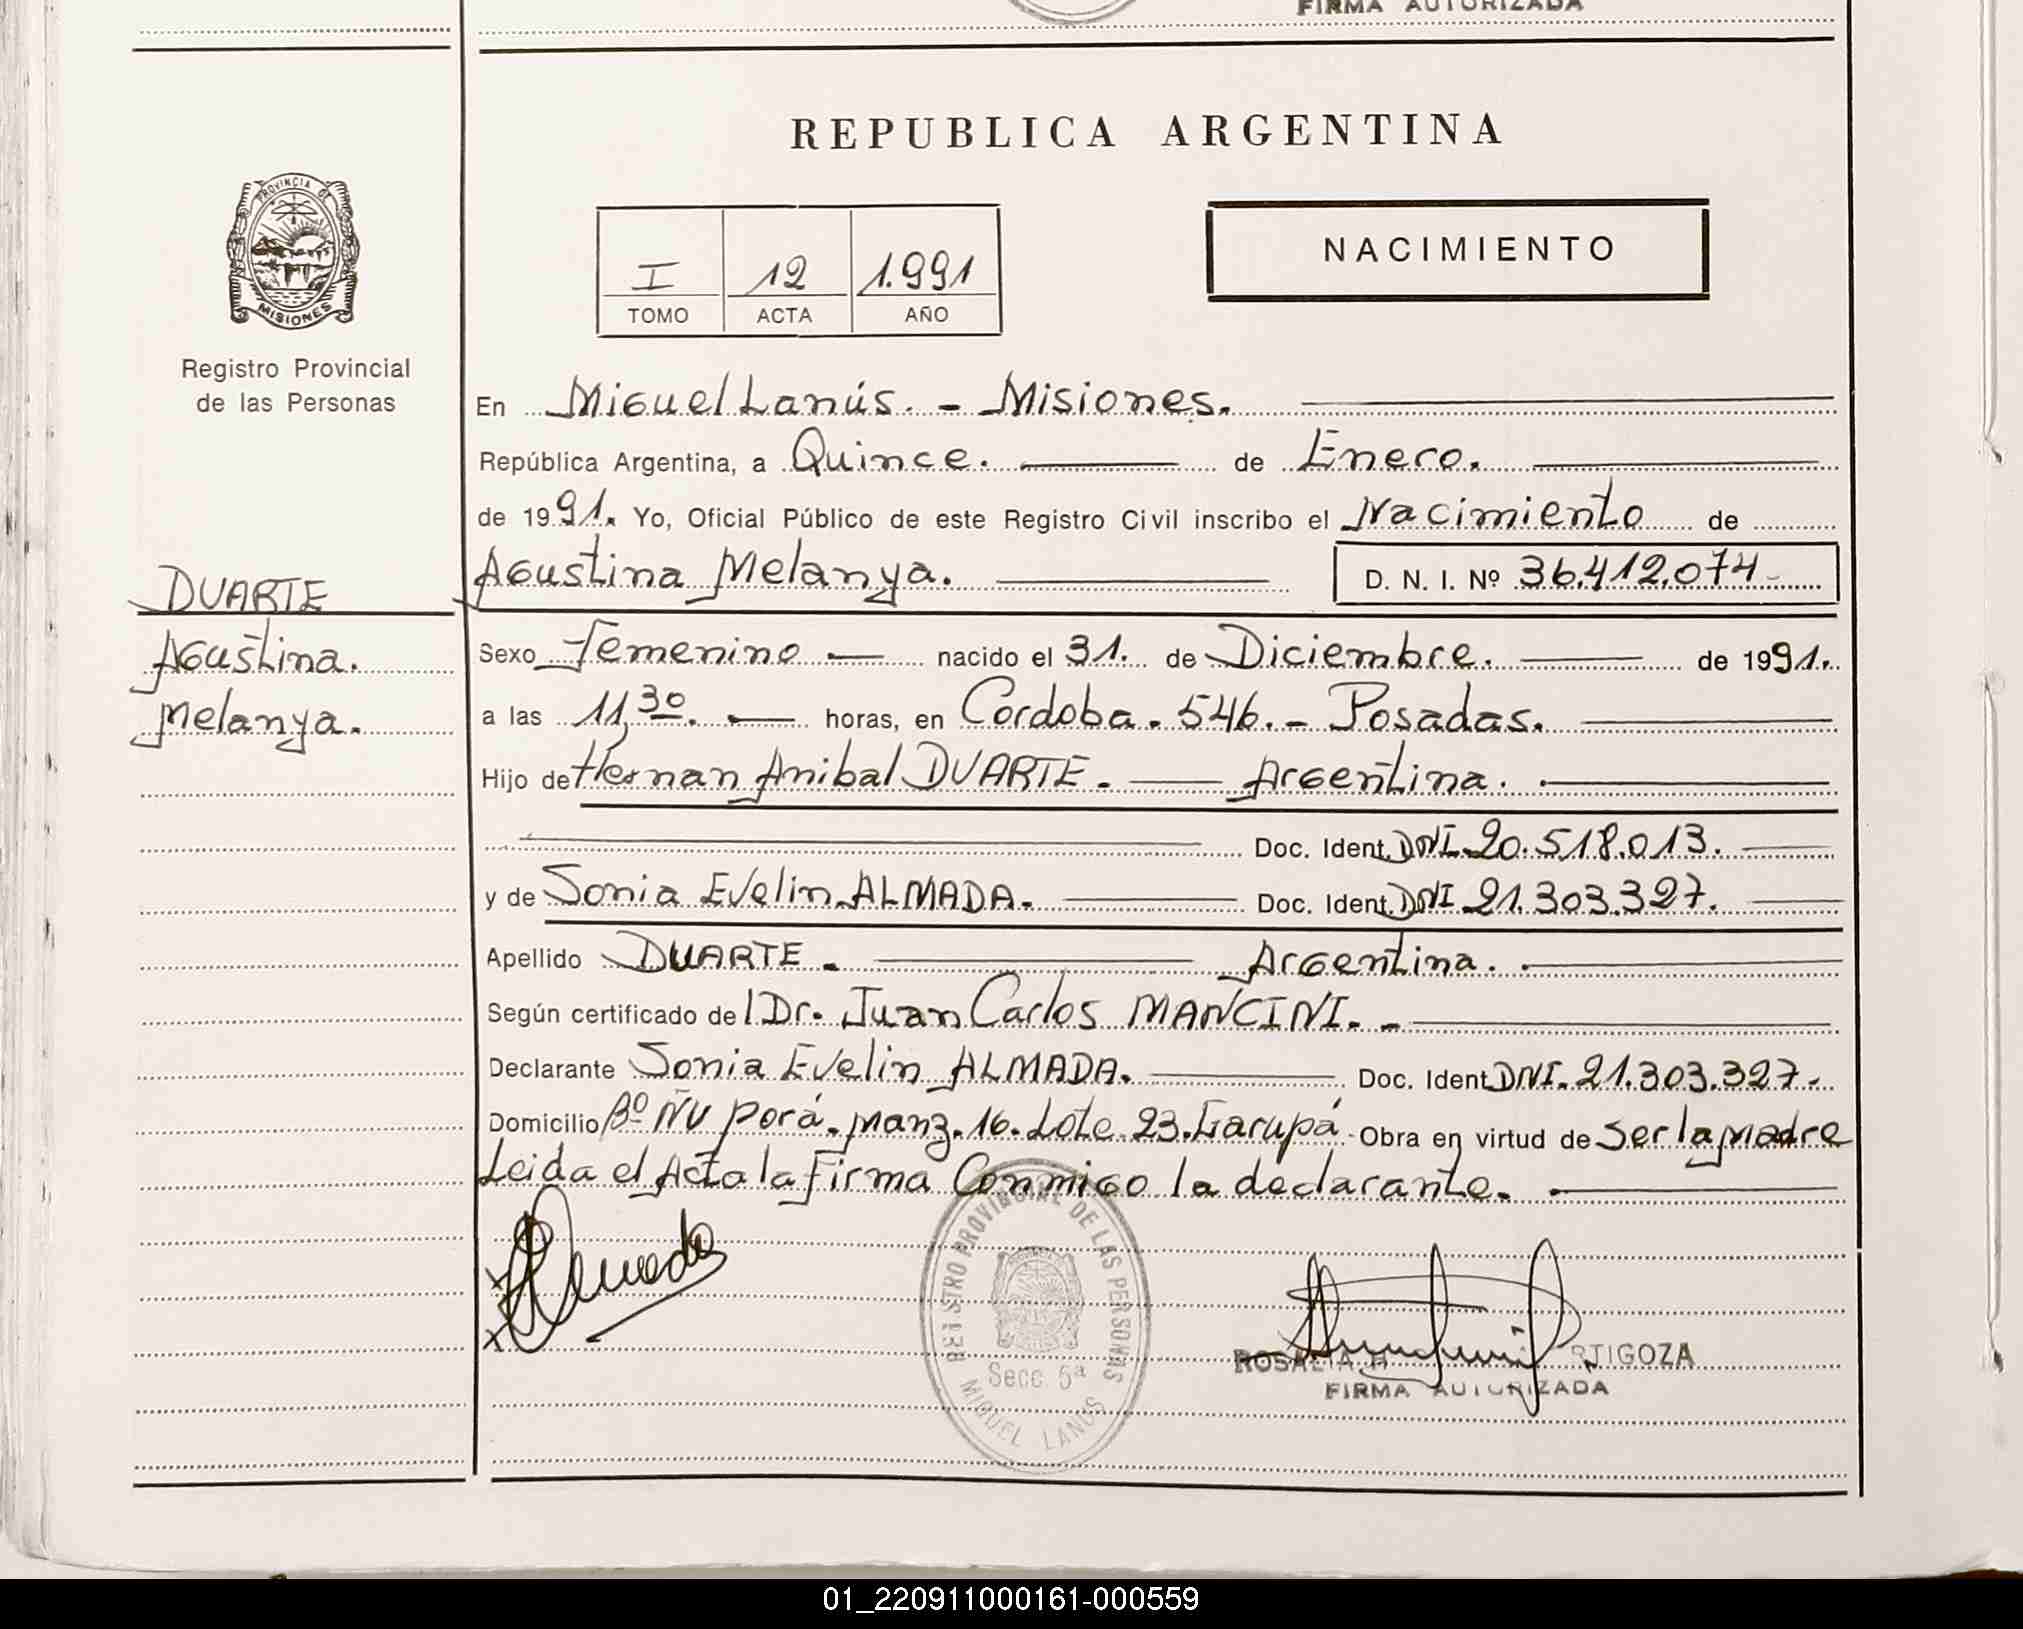 FIRMA AUTORIZADA
REPUBLICA ARGENTINA
PROVINCIA DE
MISIONES
Registro Provincial
de las Personas
I 12 1.991
TOMO ACTA AÑO
NACIMIENTO
En Miguel Lanús. - Misiones.
República Argentina, a Quince. de Enero.
de 1991. Yo, Oficial Público de este Registro Civil inscribo el Nacimiento de
Agustina Melanya. D. N. I. Nº 36.412.074-
DUARTE
Agustina.
Melanya.
Sexo Femenino nacido el 31. de Diciembre. de 1991.
a las 11,30. horas, en Córdoba. 546. - Posadas.
Hijo de Hernan Anibal DUARTE. Argentina.
Doc. Ident. DNI. 20.518.013.
y de Sonia Evelin ALMADA. Doc. Ident. DNI 21.303.327.
Apellido DUARTE. Argentina.
Según certificado del Dr. Juan Carlos MANCINI. -
Declarante Sonia Evelin ALMADA. Doc. Ident DNI. 21.303.327.
Domicilio Bº Ñu Porá. Manz. 16. Lote. 23. Garupá Obra en virtud de Ser la Madre
Leida el Acta la Firma Conmigo la declarante.
Almada
REGISTRO PROVINCIAL DE LAS PERSONAS
Secc. 5ª
MIGUEL LANUS
ROSALIA H. ARTIGOZA
FIRMA AUTORIZADA
01_220911000161-000559